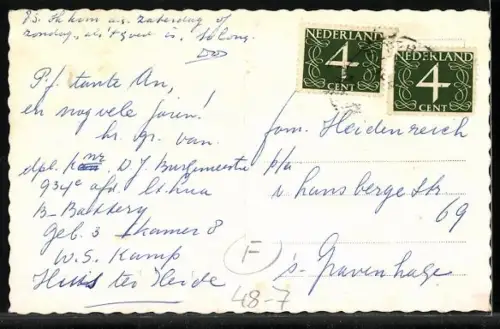 P.S. Ik kom a.s. zaterdag of
zondag, als 't goed is. So long.
P.f. tante An,
en nog vele jaren!
hr. gr. van
dpl. Knr. D.J. Burgemeestre
934e afd. Lt.
B-Battery
geb. 3 kamer 8
W.S. Kamp
Huis ter Heide
NEDERLAND
4
CENT
NEDERLAND
4
CENT
fam. Heidenreich
p/a
69
's-Gravenhage
F
48-7